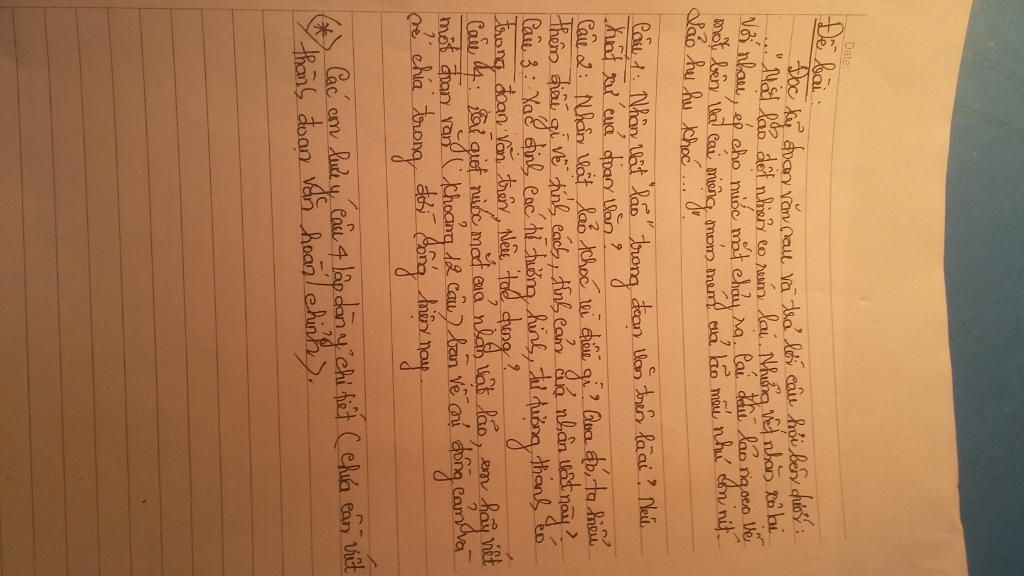 Date:
Đề bài:
Đọc kỹ đoạn văn sau và trả lời câu hỏi bên dưới:
..." Mặt lão đột nhiên co rúm lại. Những vết nhăn xô lại
với nhau, ép cho nước mắt chảy ra. Cái đầu lão ngoẹo về
một bên và cái miệng móm mém của lão mếu như con nít.
Lão hu hu khóc..."
Câu 1: Nhân vật "lão" trong đoạn văn trên là ai? Nêu
xuất xứ của đoạn văn?
Câu 2: Nhân vật lão khóc vì điều gì? Qua đó ta hiểu
thêm điều gì về tính cách, tình cảm của nhân vật này?
Câu 3: Xác định các từ tượng hình, từ tượng thanh có
trong đoạn văn trên. Nêu tác dụng?
Câu 4: Từ giọt nước mắt của nhân vật lão, em hãy viết
một đoạn văn (khoảng 12 câu) bàn về sự đồng cảm và
sẻ chia trong đời sống hiện nay.
(*) Các em lưu ý câu 4 lập dàn ý chi tiết (chưa cần viết
thành đoạn văn hoàn chỉnh).